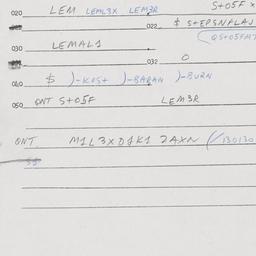 S+05F x
020 LEM LEML3X LEM3R
022 $ S+EPSN/LAJ
QS+05FM7
030 LEMAL1
032 0
040 $ )-KOS+ )-BARAN )-BURN
050 QNT S+05F LEM3R
QNT M1L3XD1K1 2AXN (/130130
55